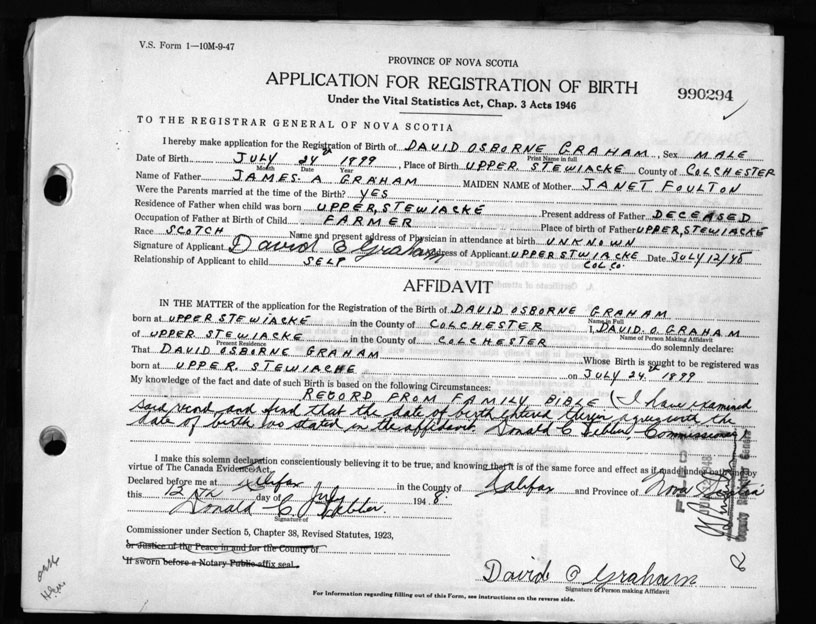 V.S. Form 1—10M-9-47
PROVINCE OF NOVA SCOTIA
APPLICATION FOR REGISTRATION OF BIRTH
990294
Under the Vital Statistics Act, Chap. 3 Acts 1946
TO THE REGISTRAR GENERAL OF NOVA SCOTIA
I hereby make application for the Registration of Birth of DAVID OSBORNE GRAHAM, Sex MALE
Print Name in full
Date of Birth JULY 24th 1899, Place of Birth UPPER STEWIACKE County of COLCHESTER
Month Date Year
Name of Father JAMES. A GRAHAM MAIDEN NAME of Mother JANET FOULTON
Were the Parents married at the time of the Birth? YES
Residence of Father when child was born UPPER, STEWIACKE Present address of Father DECEASED
Occupation of Father at Birth of Child FARMER Place of birth of Father UPPER, STEWIACKE
Race SCOTCH Name and present address of Physician in attendance at birth UNKNOWN
Signature of Applicant David O Graham Address of Applicant UPPER STWIACKE Date JULY/12/48
COL CO.
Relationship of Applicant to child SELF
AFFIDAVIT
IN THE MATTER of the application for the Registration of the Birth of DAVID OSBORNE GRAHAM
Name in Full
born at UPPER STEWIACKE in the County of COLCHESTER I, DAVID. O. GRAHAM
Name of Person Making Affidavit
of UPPER STEWIACKE in the County of COLCHESTER do solemnly declare:
Present Residence
That DAVID OSBORNE GRAHAM Whose Birth is sought to be registered was
born at UPPER. STEWIACHE on JULY 24th 1899
My knowledge of the fact and date of such Birth is based on the following Circumstances:
RECORD FROM FAMILY BIBLE (I have examined
said record and find that the date of birth entered therein agrees with the
date of birth as stated in the affidavit. Donald C. Commissioner)
I make this solemn declaration conscientiously believing it to be true, and knowing that it is of the same force and effect as if made under oath and by
virtue of The Canada Evidence Act.
Declared before me at Halifax in the County of Halifax and Province of Nova Scotia
this 12th day of July 1948.
Donald C.
Signature of
Commissioner under Section 5, Chapter 38, Revised Statutes, 1923,
or Justice of the Peace in and for the County of
If sworn before a Notary Public affix seal.
David O Graham
Signature of Person making Affidavit
For Information regarding filling out of this Form, see instructions on the reverse side.